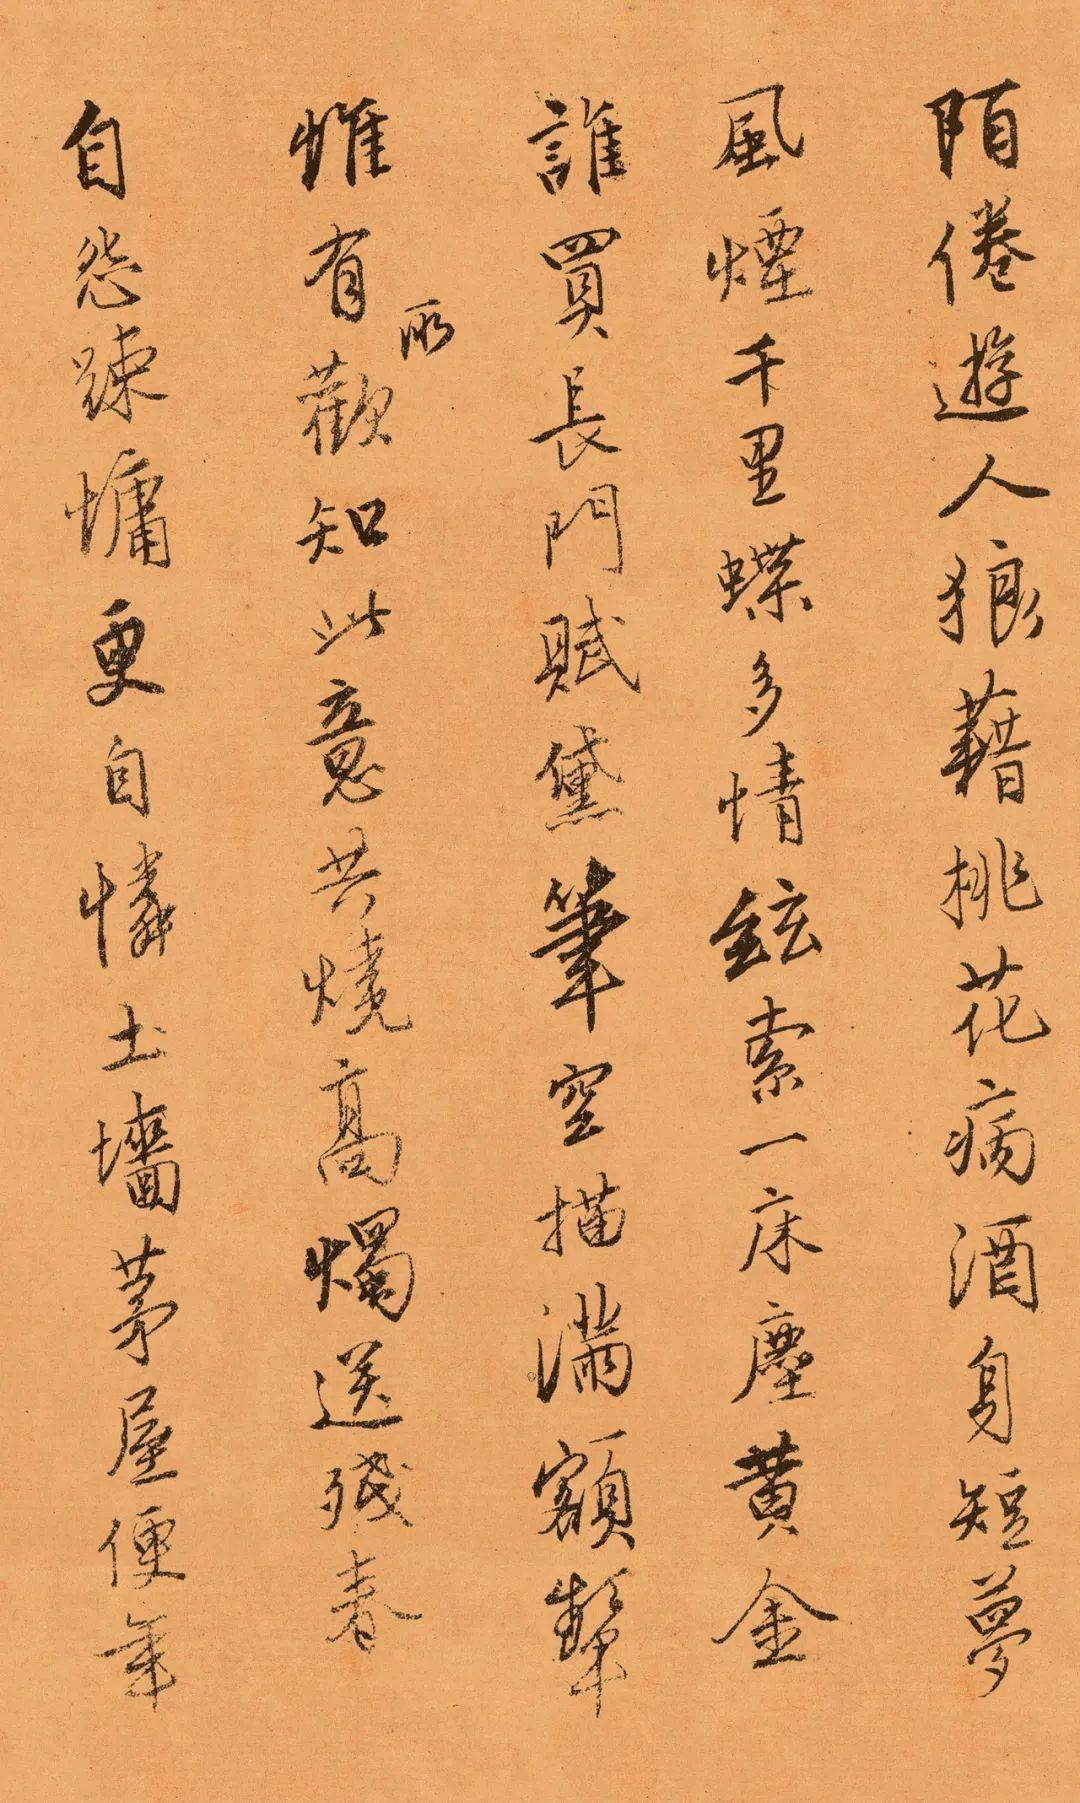 陌倦遊人狼藉桃花病酒身短夢
風煙千里蝶多情鉉索一床塵黃金
誰買長門賦黛筆空描滿額顰
惟有歡知此意共燒高燭送殘春
所
自怨疎慵更自憐土墻茅屋便年